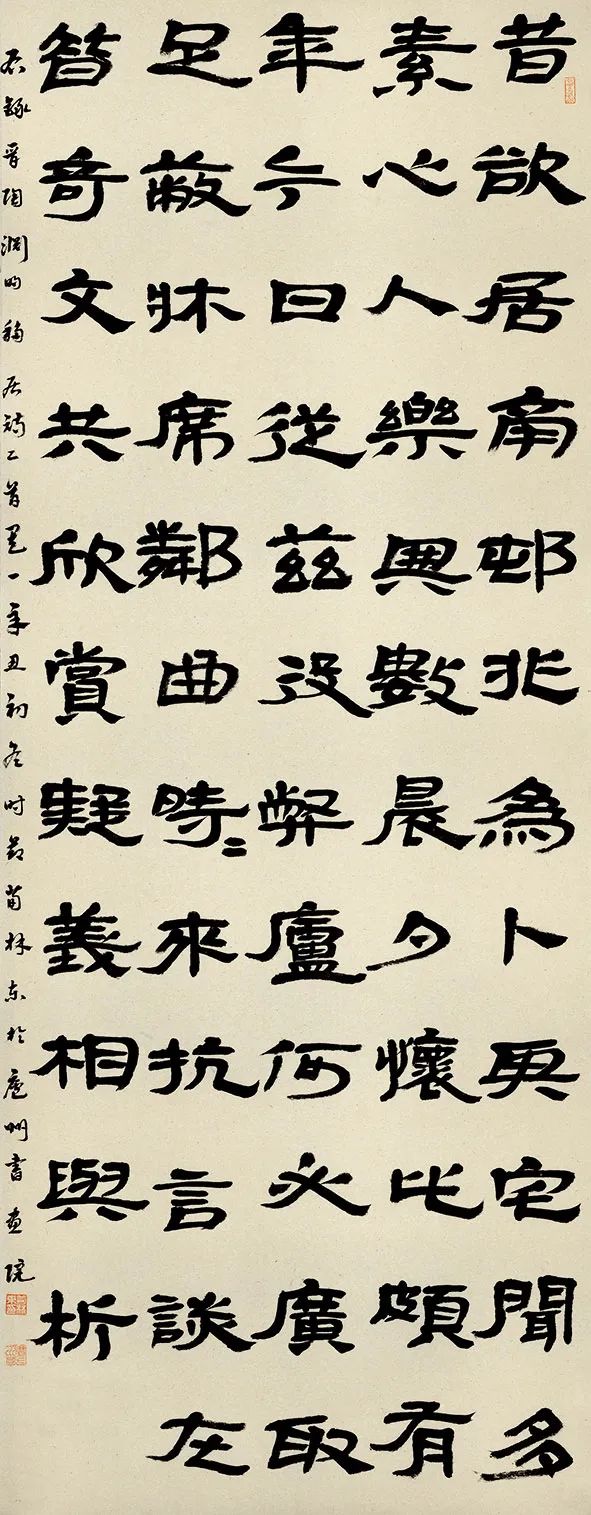 昔欲居南邨非為卜其宅聞多
素心人樂與數晨夕懷此頗有
年今日從茲役弊廬何必廣取
足蔽牀席鄰曲時〻來抗言談在
昔奇文共欣賞疑義相與析
右錄晉陶淵明移居詩二首其一辛丑初冬时節林东於廬州書畫院